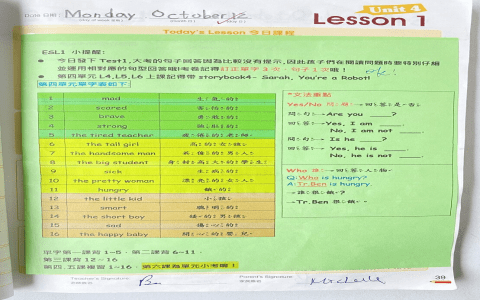 Date 日期: Monday October 12
Unit 4
Lesson 1
Today's Lesson 今日課程
ESL1 小提醒:
● 今日發下 Test1, 大考的句子回答因為比較沒有提示, 因此孩子們在閱讀問題時要特別仔細
並運用相對應的句型回答哦!考卷記得訂正單字3次、句子1次喔! ok!
● 第四單元L4,L5,L6 上課記得帶 storybook4- Sarah, You're a Robot!
第四單元單字表如下
1 mad 生氣的
2 scared 害怕的
3 brave 勇敢的
4 strong 強壯的
5 the tired teacher 疲倦的老師
6 the tall girl 高的女孩
7 the handsome man 英俊的男人
8 the big student 身材高大的學生
9 sick 生病的
10 the pretty woman 漂亮的女人
11 hungry 餓的
12 the little kid 小孩
13 smart 聰明的
14 the short boy 矮的男孩
15 sad 傷心的
16 the happy baby 開心的嬰兒
*文法重點
Yes/No 問題→回答是否
問:→Are you ____?
回答:→Yes, I am ____.
No, I am not ____.
問:→Is he ____?
回答:→Yes, he is ____.
No, he is not ____.
Who 誰→回答人物.
Q: Who is hungry?
A: Tr.Ben is hungry.
→誰很餓?
→Tr.Ben 很餓.
單字第一課背 1-5, 第二課背 6-11,
第三課背 12-16
第四、五課複習 1-16, 第六課為單元小考喔!
Parent's Signature
Michelle
39